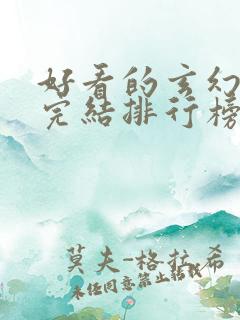 好看的玄幻
完结排行榜
莫夫-格拉希
未经同意禁止转载